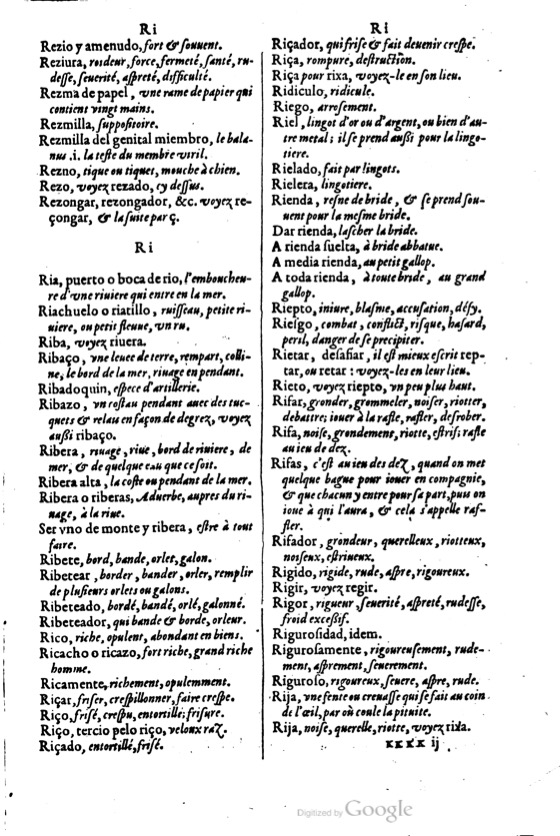 Ri
Rezio y amenudo, fort & ſouuent.
Reziura, roideur, force, fermeté, ſanté, ru-
deſſe, ſeuerité, aſpreté, difficulté.
Rezma de papel, vne rame de papier qui
contient vingt mains.
Rezmilla, ſuppoſitoire.
Rezmilla del genital miembro, le bala-
nus .i. la teſte du membre viril.
Rezno, tique ou tiquet, mouche à chien.
Rezo, voyez rezado, cy deſſus.
Rezongar, rezongador, &c. voyez re-
çongar, & la ſuite par ç.
Ri
Ria, puerto o boca de rio, l'emboucheu-
re d'vne riuiere qui entre en la mer.
Riachuelo o riatillo, ruiſſeau, petite ri-
uiere, ou petit fleuue, vn ru.
Riba, voyez riuera.
Ribaço, vne leuee de terre, rempart, colli-
ne, le bord de la mer, riuage en pendant.
Ribadoquin, eſpece d'artillerie.
Ribazo, vn coſtau pendant auec des tuc-
quets & relau en façon de degrez, voyez
außi ribaço.
Ribera, riuage, riue, bord de riuiere, de
mer, & de quelque eau que ce ſoit.
Ribera alta, la coſte ou pendant de la mer.
Ribera o riberas, Aduerbe, aupres du ri-
uage, à la riue.
Ser vno de monte y ribera, eſtre à tout
faire.
Ribete, bord, bande, orlet, galon.
Ribetear, border, bander, orler, remplir
de pluſieurs orlets ou galons.
Ribeteado, bordé, bandé, orlé, galonné.
Ribeteador, qui bande & borde, orleur.
Rico, riche, opulent, abondant en biens.
Ricacho o ricazo, fort riche, grand riche
homme.
Ricamente, richement, opulemment.
Riçar, friſer, creſpillonner, faire creſpe.
Riço, friſé, creſpu, entortillé; friſure.
Riço, tercio pelo riço, veloux raz.
Riçado, entortillé, friſé.
Ri
Riçador, qui friſe & fait deuenir creſpe.
Riça, rompure, deſtruction.
Riça pour rixa, voyez-le en ſon lieu.
Ridiculo, ridicule.
Riego, arroſement.
Riel, lingot d'or ou d'argent, ou bien d'au-
tre metal; il ſe prend außi pour la lingo-
tiere.
Rielado, fait par lingots.
Rielera, lingotiere.
Rienda, reſne de bride, & ſe prend ſou-
uent pour la meſme bride.
Dar rienda, laſcher la bride.
A rienda ſuelta, à bride abbatue.
A media rienda, au petit gallop.
A toda rienda, à toute bride, au grand
gallop.
Riepto, iniure, blaſme, accuſation, défy.
Rieſgo, combat, conflict, riſque, haſard,
peril, danger de ſe precipiter.
Rietar, deſafiar, il eſt mieux eſcrit rep-
tar, ou retar : voyez-les en leur lieu.
Rieto, voyez riepto, vn peu plus haut.
Rifar, gronder, grommeler, noiſer, riotter,
debattre; iouer à la rafle, rafler, deſrober.
Rifa, noiſe, grondement, riotte, eſtrif; rafle
au ieu de dez.
Rifas, c'eſt au ieu des dez, quand on met
quelque bague pour iouer en compagnie,
& que chacun y entre pour ſa part, puis on
ioue à qui l'aura, & cela s'appelle raf-
fler.
Rifador, grondeur, querelleux, riotteux,
noiſeux, eſtriueux.
Rigido, rigide, rude, aſpre, rigoureux.
Rigir, voyez regir.
Rigor, rigueur, ſeuerité, aſpreté, rudeſſe,
froid exceßif.
Riguroſidad, idem.
Riguroſamente, rigoureuſement, rude-
ment, aſprement, ſeuerement.
Riguroſo, rigoureux, ſeuere, aſpre, rude.
Rija, vne fente ou creuaſſe qui ſe fait au coin
de l'œil, par où coule la pituite.
Rija, noiſe, querelle, riotte, voyez rixa.
KKKK ij
Digitized by Google